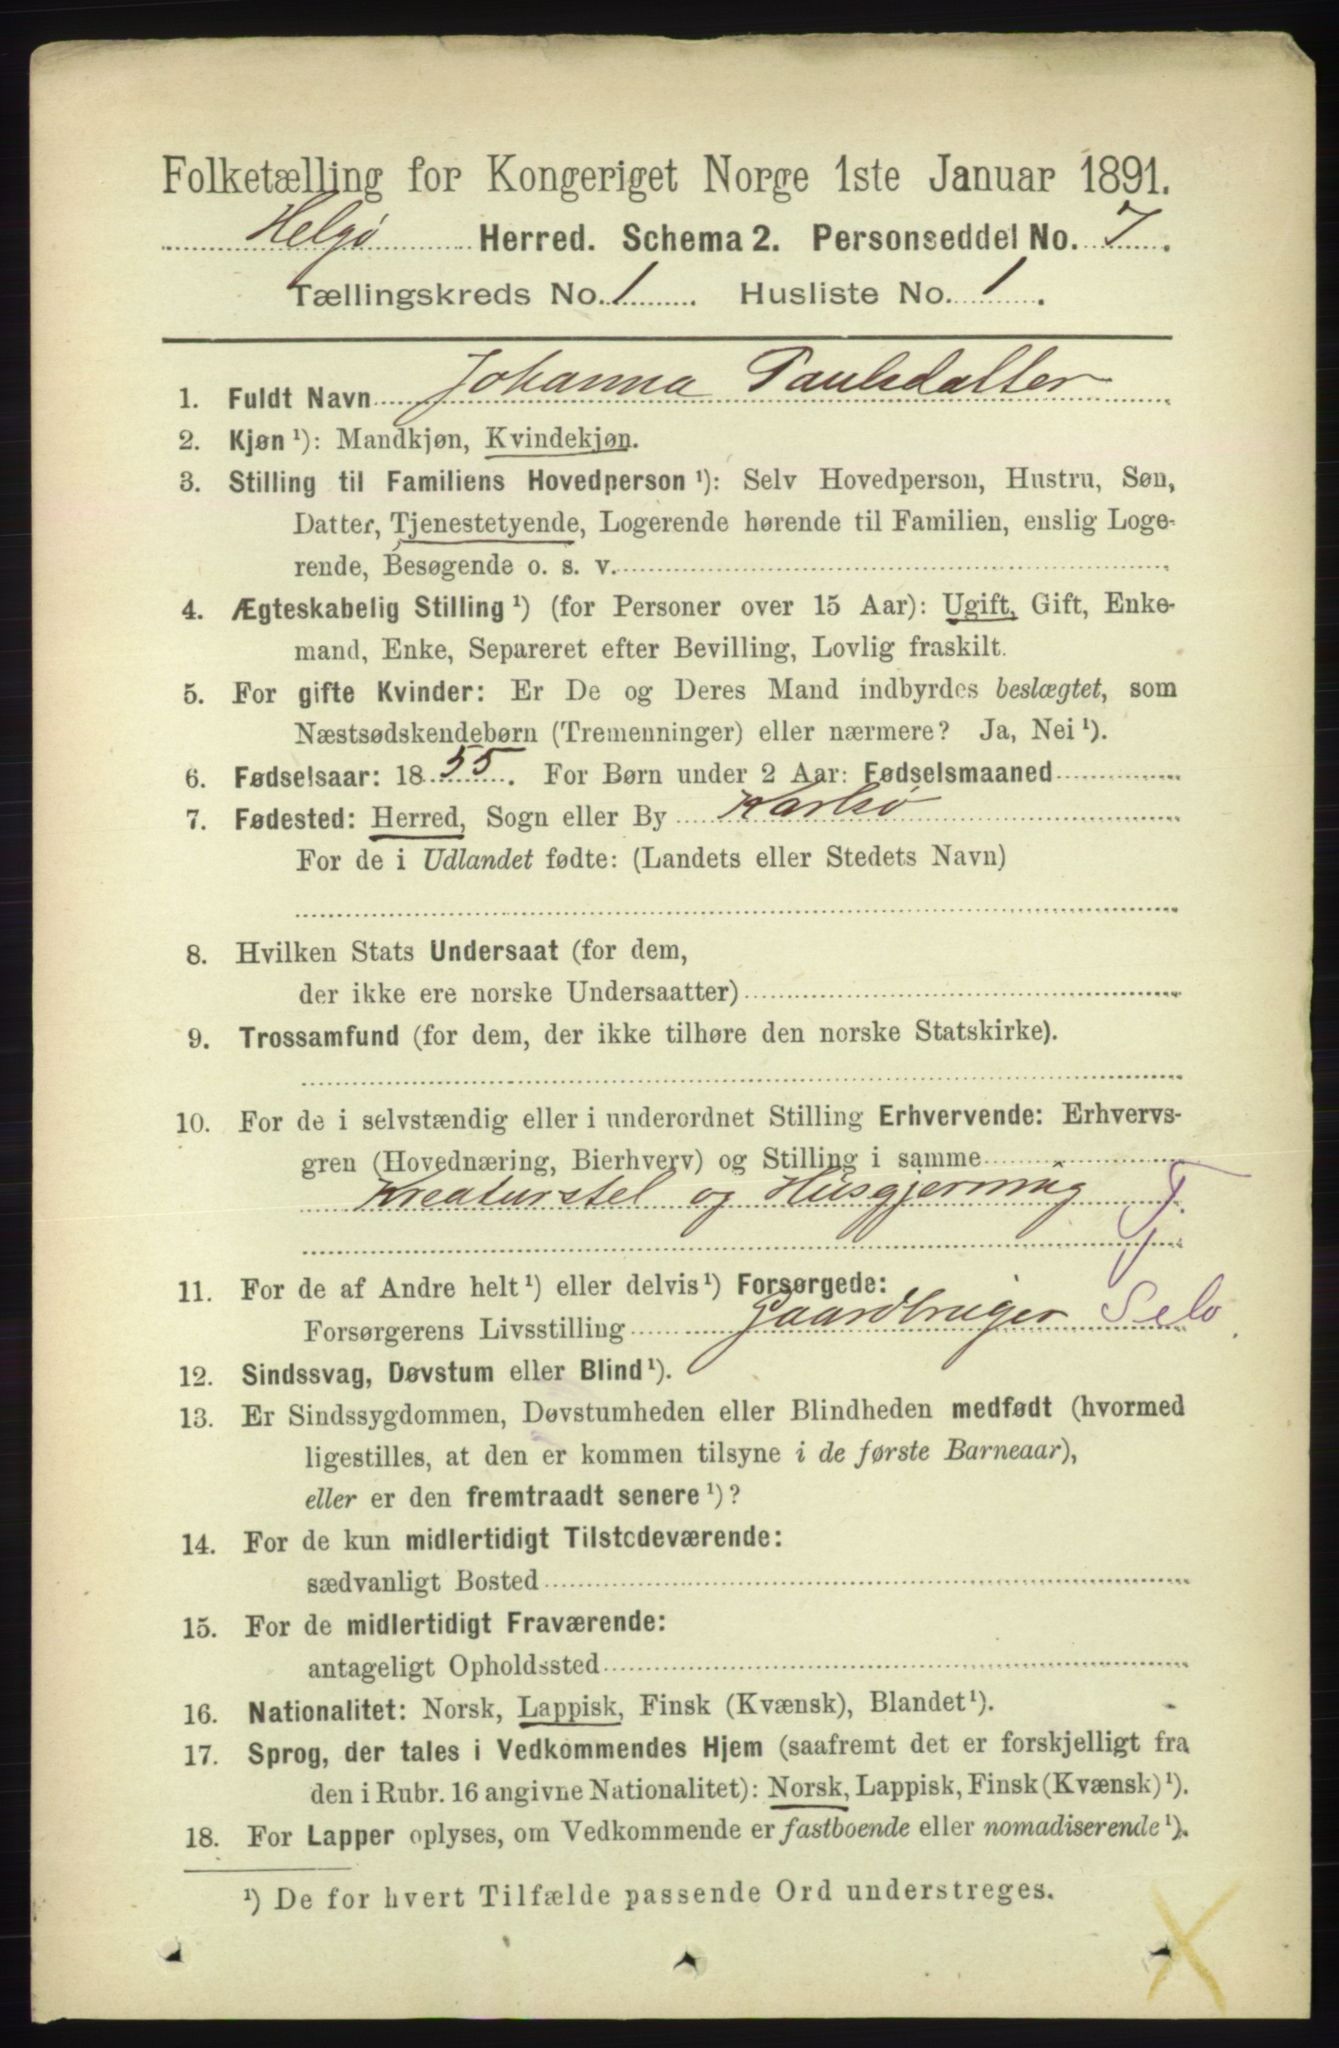 Folketælling for Kongeriget Norge 1ste Januar 1891.
Helgø Herred. Schema 2. Personseddel No. 7.
Tællingskreds No. 1. Husliste No. 1.
1. Fuldt Navn Johanna Paulsdatter
2. Kjøn ¹): Mandkjøn, Kvindekjøn.
3. Stilling til Familiens Hovedperson ¹): Selv Hovedperson, Hustru, Søn,
Datter, Tjenestetyende, Logerende hørende til Familien, enslig Loge-
rende, Besøgende o. s. v.
4. Ægteskabelig Stilling ¹) (for Personer over 15 Aar): Ugift, Gift, Enke-
mand, Enke, Separeret efter Bevilling, Lovlig fraskilt.
5. For gifte Kvinder: Er De og Deres Mand indbyrdes beslægtet, som
Næstsødskendebørn (Tremenninger) eller nærmere? Ja, Nei ¹).
6. Fødselsaar: 1855. For Børn under 2 Aar: Fødselsmaaned
7. Fødested: Herred, Sogn eller By Karlsø
For de i Udlandet fødte: (Landets eller Stedets Navn)
8. Hvilken Stats Undersaat (for dem,
der ikke ere norske Undersaatter)
9. Trossamfund (for dem, der ikke tilhøre den norske Statskirke).
10. For de i selvstændig eller i underordnet Stilling Erhvervende: Erhvervs-
gren (Hovednæring, Bierhverv) og Stilling i samme
Kreaturstel og Husgjerning T
11. For de af Andre helt ¹) eller delvis ¹) Forsørgede:
Forsørgerens Livsstilling Gaardbruger Selv
12. Sindssvag, Døvstum eller Blind ¹).
13. Er Sindssygdommen, Døvstumheden eller Blindheden medfødt (hvormed
ligestilles, at den er kommen tilsyne i de første Barneaar),
eller er den fremtraadt senere ¹)?
14. For de kun midlertidigt Tilstedeværende:
sædvanligt Bosted
15. For de midlertidigt Fraværende:
antageligt Opholdssted
16. Nationalitet: Norsk, Lappisk, Finsk (Kvænsk), Blandet ¹).
17. Sprog, der tales i Vedkommendes Hjem (saafremt det er forskjelligt fra
den i Rubr. 16 angivne Nationalitet): Norsk, Lappisk, Finsk (Kvænsk) ¹).
18. For Lapper oplyses, om Vedkommende er fastboende eller nomadiserende ¹).
¹) De for hvert Tilfælde passende Ord understreges.